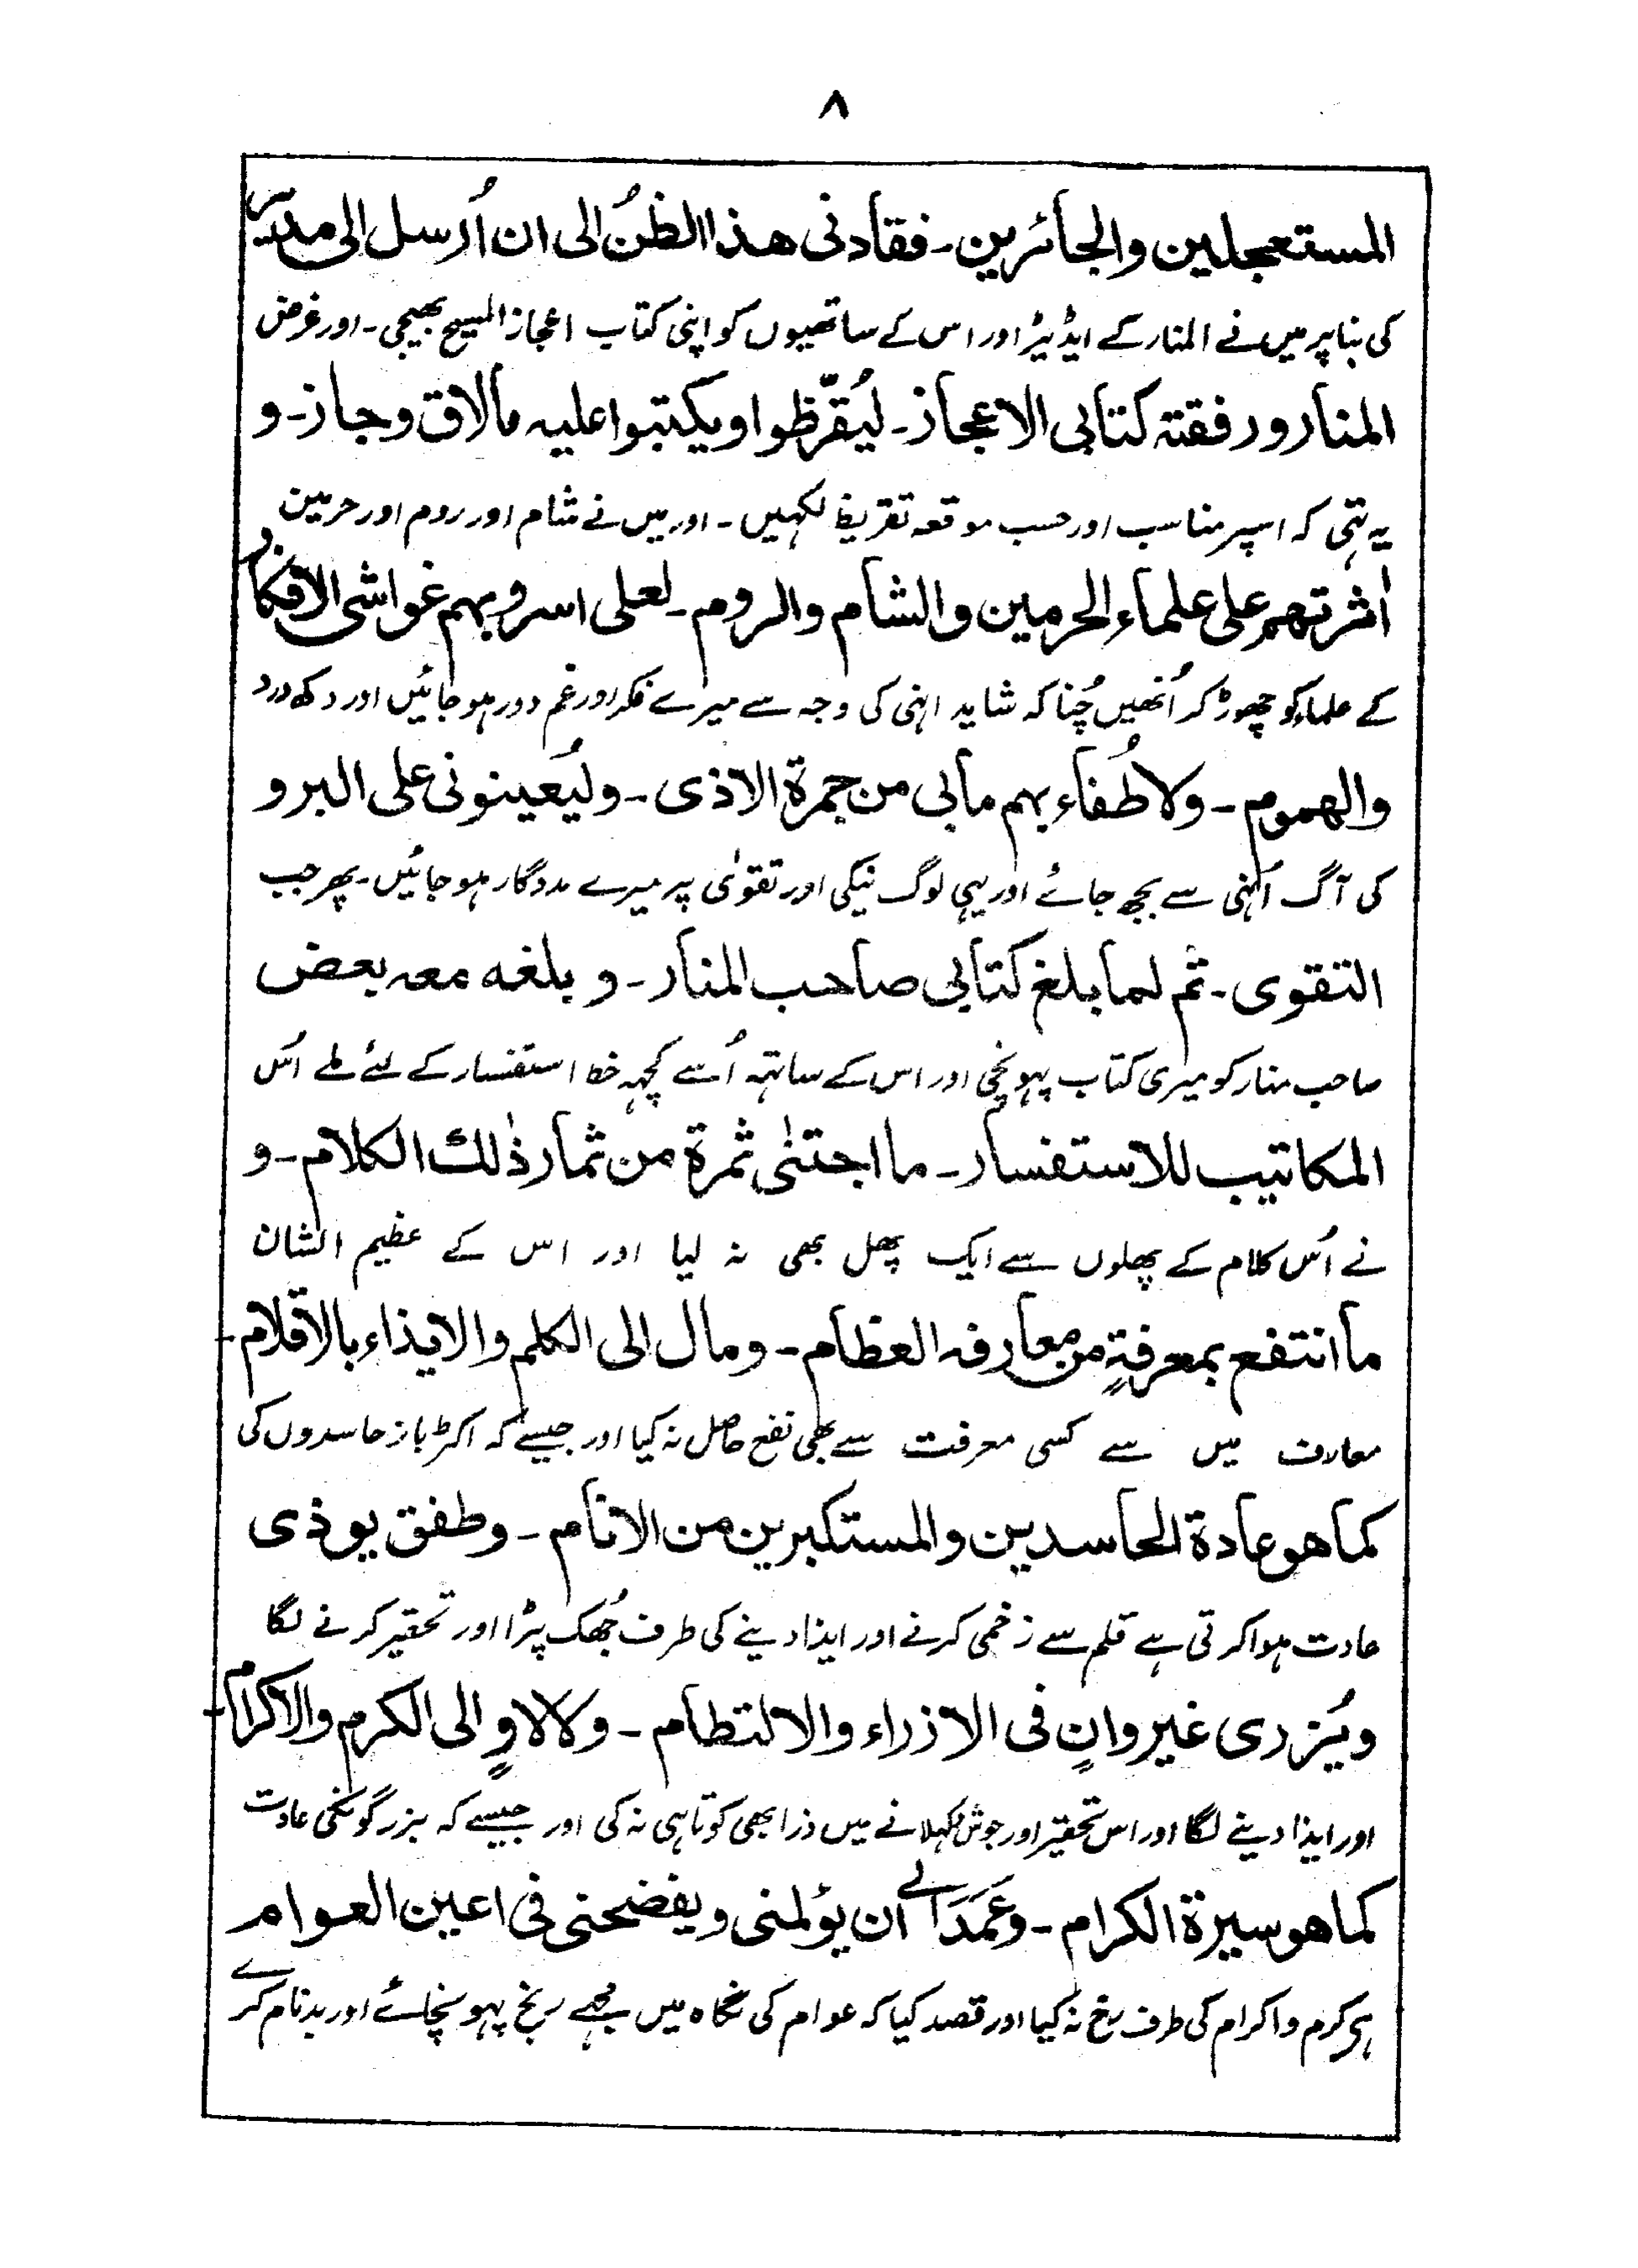 ۸
المستعجلین والجائرین۔ فقادنی ھذا الظنُّ الی ان اُرسل الی مدیر
کی بنا پر میں نے المنار کے ایڈیٹر اور اس کے ساتھیوں کو اپنی کتاب اعجاز المسیح بھیجی۔ اور غرض
المنار ورفقتہ کتابی الاعجاز۔ لیُقرّظوا ویکتبوا علیہ مالاق وجاز۔ و
یہ تہی کہ اسپر مناسب اور حسب موقعہ تقریظ لکہیں۔ اور میں نے شام اور روم اور حرمین
اٰثرتھم علی علماء الحرمین والشام والروم۔ لعلی اسرو بہم غواشی الافکار
کے علماء کو چھوڑ کر اُنھیں چُنا کہ شاید انہی کی وجہ سے میرے فکر اور غم دور ہو جائیں اور دکھ درد
والھموم۔ ولاُطفاء بہم مابی من جمرۃ الاذی۔ ولیُعینونی علی البر و
کی آگ اُنہی سے بجھ جائے اور یہی لوگ نیکی اور تقوٰی پر میرے مددگار ہو جائیں۔ پھر جب
التقوی۔ ثم لما بلغ کتابی صاحب المنار۔ و بلغہ معہ بعض
صاحب منار کو میری کتاب پہونچی اور اس کے ساتہہ اُسے کچہہ خط استفسار کے لئے ملے اُس
المکاتیب للاستفسار۔ ما اجتنٰی ثمرۃ من ثمار ذٰلک الکلام۔ و
نے اُس کلام کے پھلوں سے ایک پھل بھی نہ لیا اور اس کے عظیم الشان
ما انتفع بمعرفۃٍ من معارفہ العظام۔ ومال الی الکلم والایذاء بالاقلام۔
معارف میں سے کسی معرفت سے بھی نفع حاصل نہ کیا اور جیسے کہ اکڑ باز حاسدوں کی
کما ھو عادۃ الحاسدین والمستکبرین من الانام۔ وطفق یوذی
عادت ہوا کرتی ہے قلم سے زخمی کرنے اور ایذا دینے کی طرف جُھک پڑا اور تحقیر کرنے لگا
ویُزری غیر وانٍ فی الازراء والالتطام۔ ولا لاوٍ الی الکرم والاکرام۔
اور ایذا دینے لگا اور اس تحقیر اور جوش دکہلانے میں ذرا بھی کوتاہی نہ کی اور جیسے کہ بزرگونکی عادت
کما ھو سیرۃ الکرام۔ وعَمَدَ الی ان یؤلمنی ویفضحنی فی اعین العوام
ہی کرم و اکرام کی طرف رخ نہ کیا اور قصد کیا کہ عوام کی نگاہ میں مجہے رنج پہونچائے اور بدنام کرے